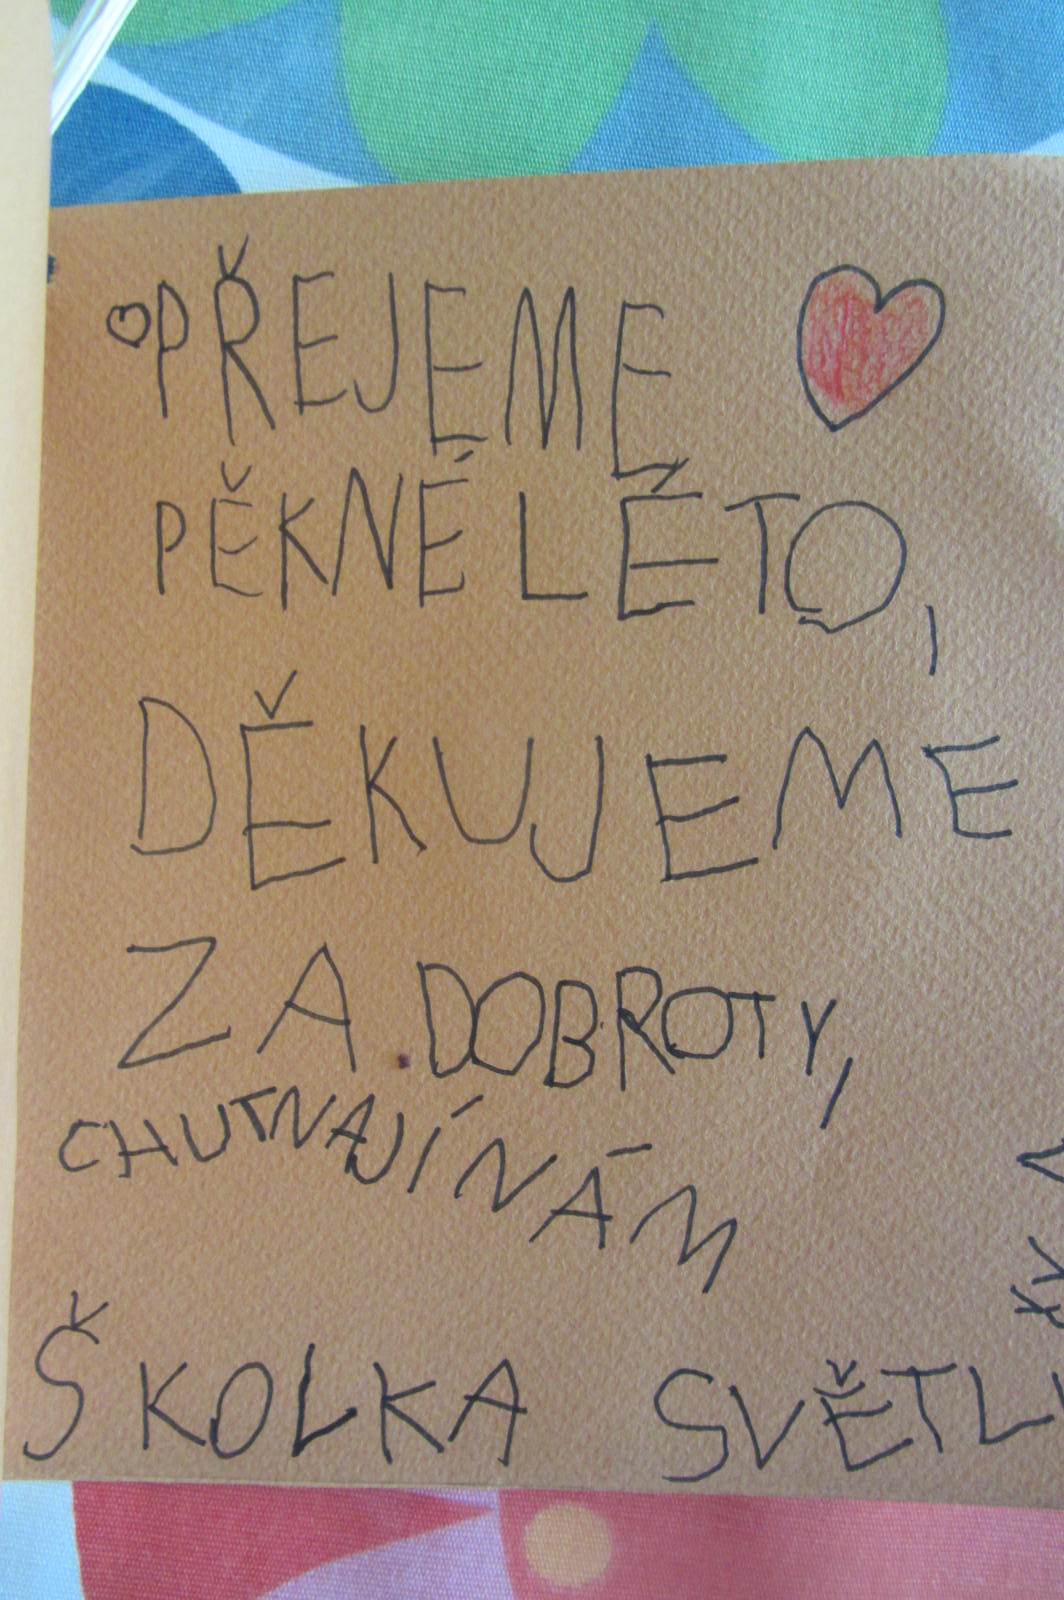 PŘEJEME
PĚKNÉ LÉTO,
DĚKUJEME
ZA DOBROTY,
CHUTNAJÍ NÁM
ŠKOLKA SVĚTL